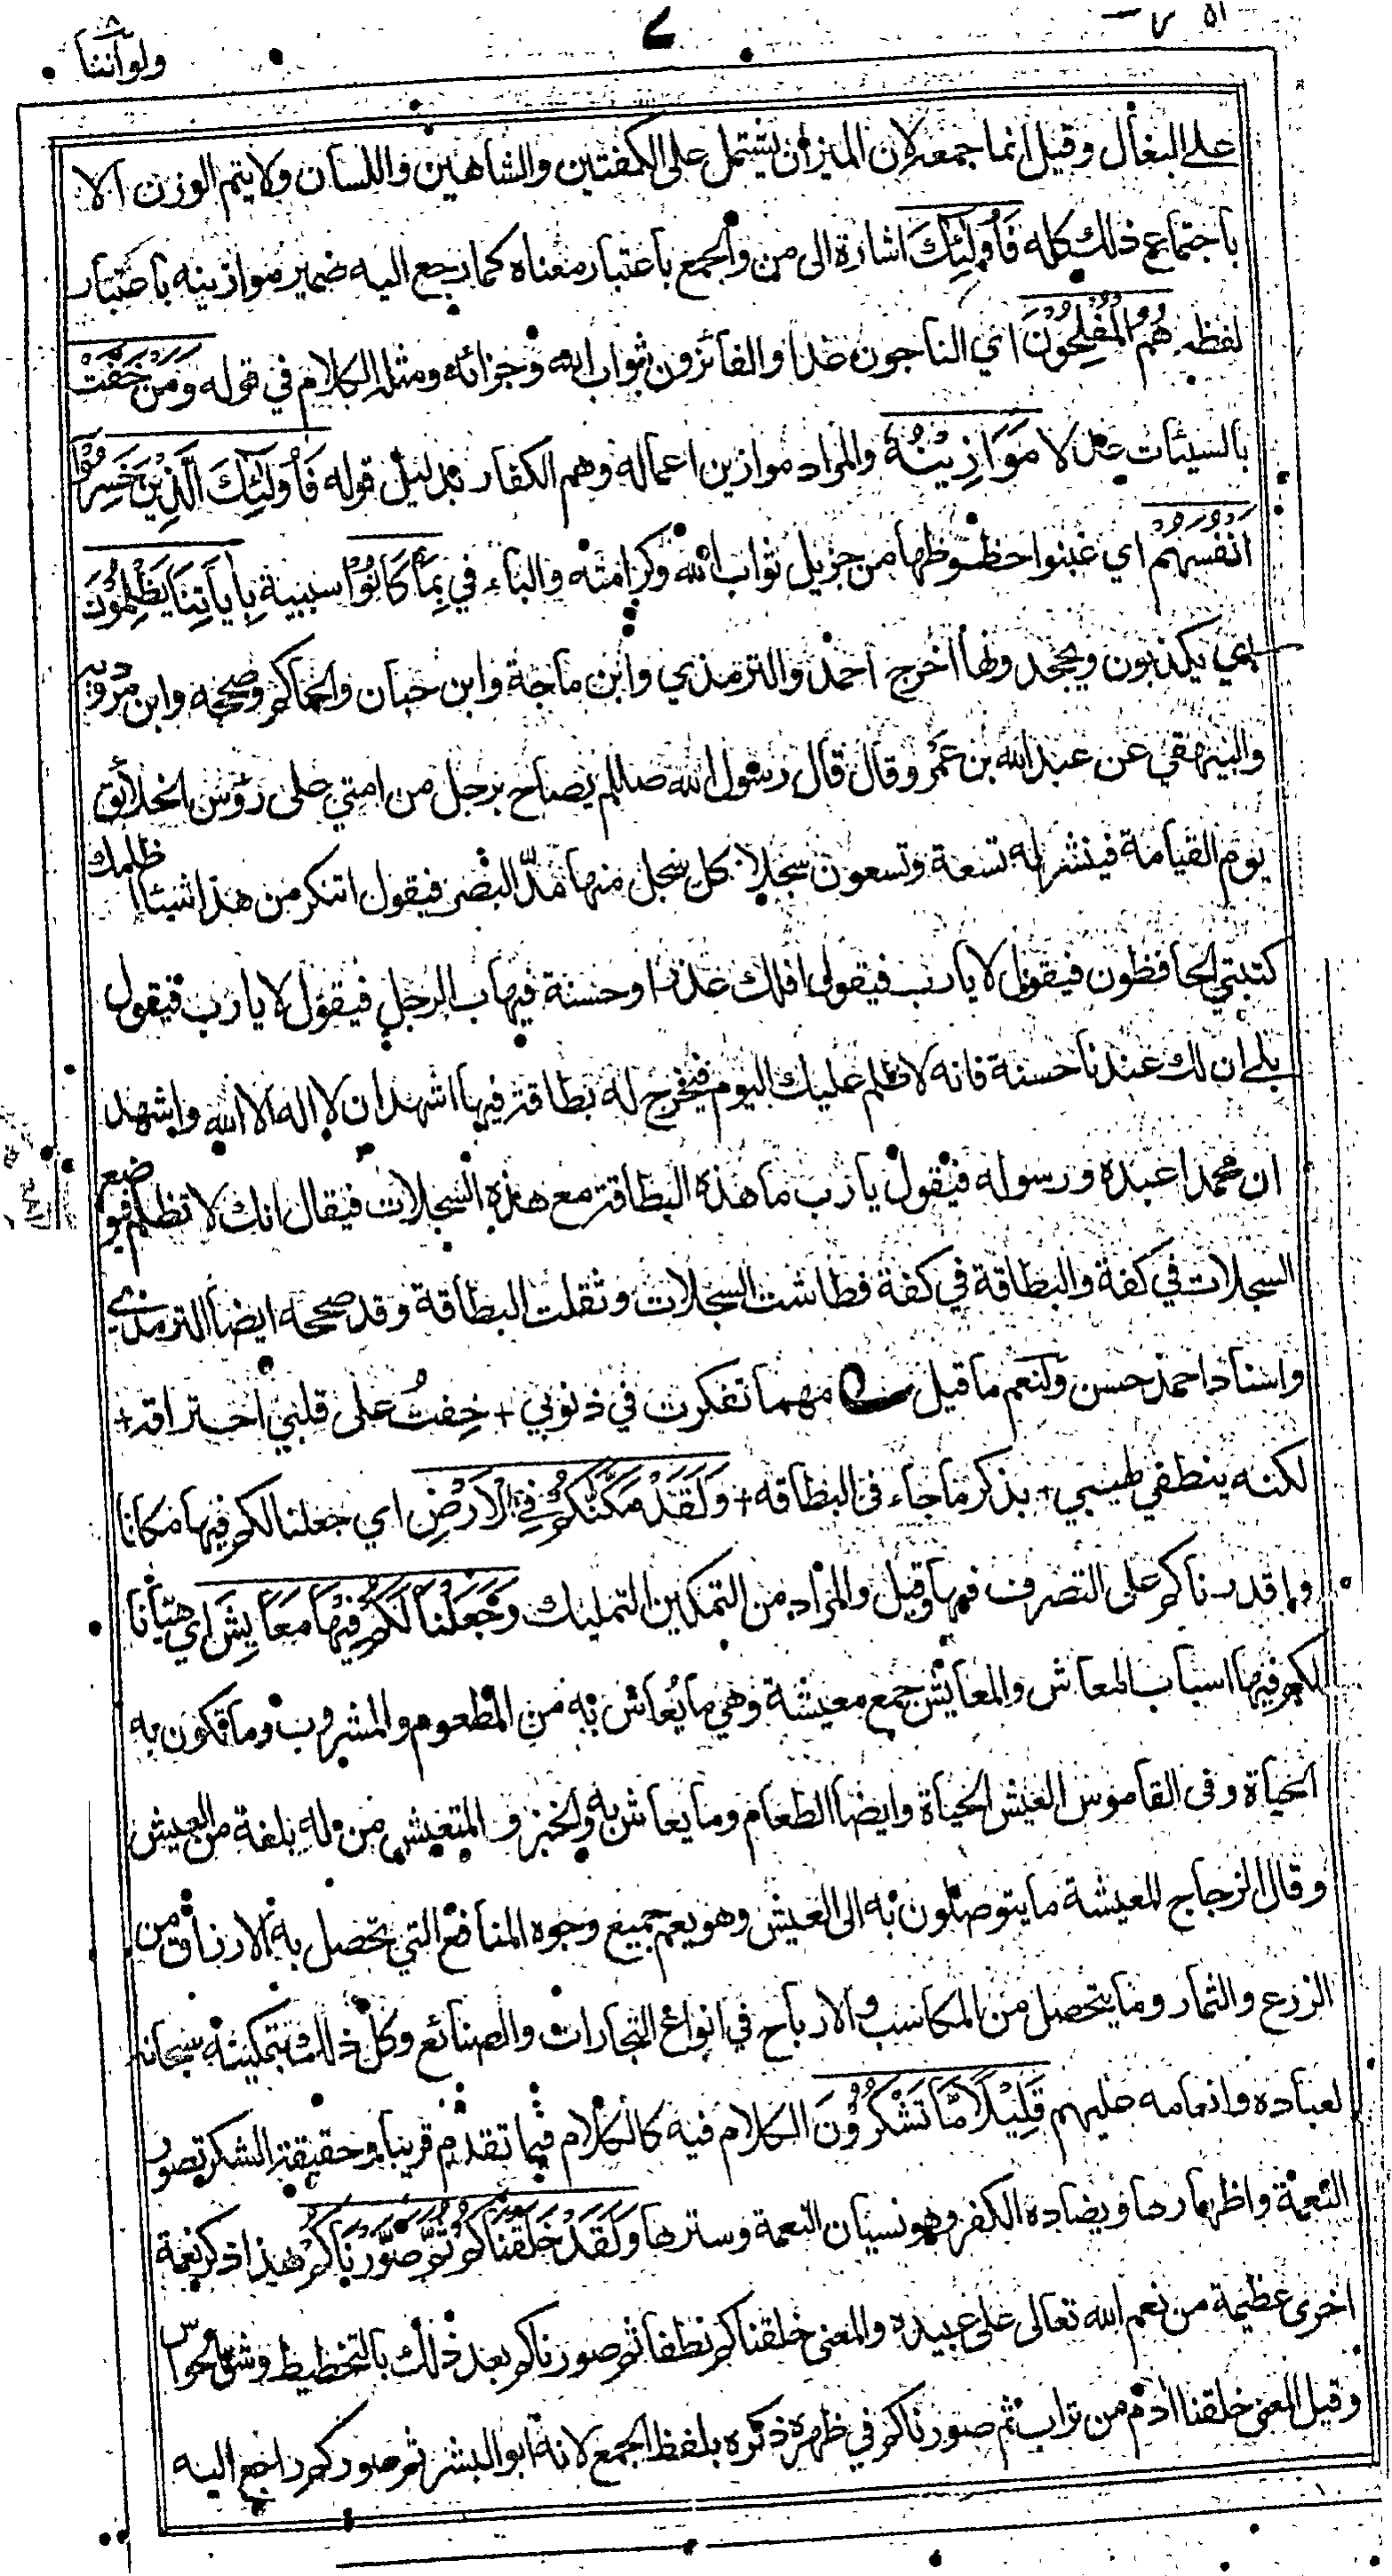 ولو اننا ٨
٧
على البغال وقيل انما جمعه لان الميزان يشتمل على الكفتين والشاهين واللسان ولا يتم الوزن الا
باجتماع ذلك كله فَأُولٰئِكَ اشارة الى من والجمع باعتبار معناه كما رجع اليه ضمير موازينه باعتبار
لفظه هُمُ الْمُفْلِحُوْنَ اي الناجون غدا والفائزون بثواب الله وجزائه ومثله الكلام في قوله وَمَنْ خَفَّتْ
بالسيئات عدلا مَوَازِيْنُهٗ والمراد موازين اعماله وهم الكفار بدليل قوله فَأُولٰئِكَ الَّذِيْنَ خَسِرُوْا
اَنْفُسَهُمْ اي غبنوا حظوظها من جزيل ثواب الله وكرامته والباء في بِمَا كَانُوْا سببية بِاٰيَاتِنَا يَظْلِمُوْنَ
اي يكذبون ويجحدونها اخرج احمد والترمذي وابن ماجة وابن حبان والحاكم وصححه وابن مردويه
والبيهقي عن عبد الله بن عمرو قال قال رسول الله صاللم يصاح برجل من امتي على رؤس الخلائق
يوم القيامة فينشر له تسعة وتسعون سجلا كل سجل منها مدّ البصر فيقول اتنكر من هذا شيئا اظلمك
كتبتي الحافظون فيقول لا يارب فيقول افلك عذر او حسنة فيهاب الرجل فيقول لا يارب فيقول
بلى ان لك عندنا حسنة فانه لا ظلم عليك اليوم فيخرج له بطاقة فيها اشهد ان لا اله الا الله واشهد
ان محمدا عبده ورسوله فيقول يا رب ما هذه البطاقة مع هذه السجلات فيقال انك لا تظلم فيوضع
السجلات في كفة والبطاقة في كفة فطاشت السجلات وثقلت البطاقة وقد صححه ايضا الترمذي
واسناد احمد حسن ولنعم ما قيل مهما تفكرت في ذنوبي + خِفتُ على قلبي احتراقه +
لكنه ينطفي لهيبي + بذكر ما جاء في البطاقه + وَلَقَدْ مَكَّنّٰكُمْ فِي الْاَرْضِ اي جعلنا لكم فيها مكانا
واقدرناكم على التصرف فيها وقيل والمراد من التمكين التمليك وَجَعَلْنَا لَكُمْ فِيْهَا مَعَايِشَ اي هيأنا
لكم فيها اسباب المعاش والمعايش جمع معيشة وهي ما يُعاش به من المطعوم والمشروب وما تكون به
الحياة وفي القاموس العيش الحياة وايضا الطعام وما يعاش به والخبز والمتعيش من له بلغة من العيش
وقال الزجاج المعيشة ما يتوصلون به الى العيش وهو يعم جميع وجوه المنافع التي تحصل به الارزاق من
الزرع والثمار وما يتحصل من المكاسب والارباح في انواع التجارات والصنائع وكل ذلك بتمكينه سبحانه
لعباده وانعامه عليهم قَلِيْلًا مَّا تَشْكُرُوْنَ الكلام فيه كالكلام فيما تقدم قريبا وحقيقة الشكر تصور
النعمة واظهارها ويضاده الكفر وهو نسيان النعمة وسترها وَلَقَدْ خَلَقْنَاكُمْ ثُمَّ صَوَّرْنَاكُمْ هذا ذكر نعمة
اخرى عظيمة من نعم الله تعالى على عبيده والمعنى خلقناكم نطفا ثم صورناكم بعد ذلك بالتخطيط وشق الحواس
وقيل المعنى خلقنا ادم من تراب ثم صورناكم في ظهره ذكره بلفظ الجمع لانه ابو البشر ثم صوركم راجع اليه